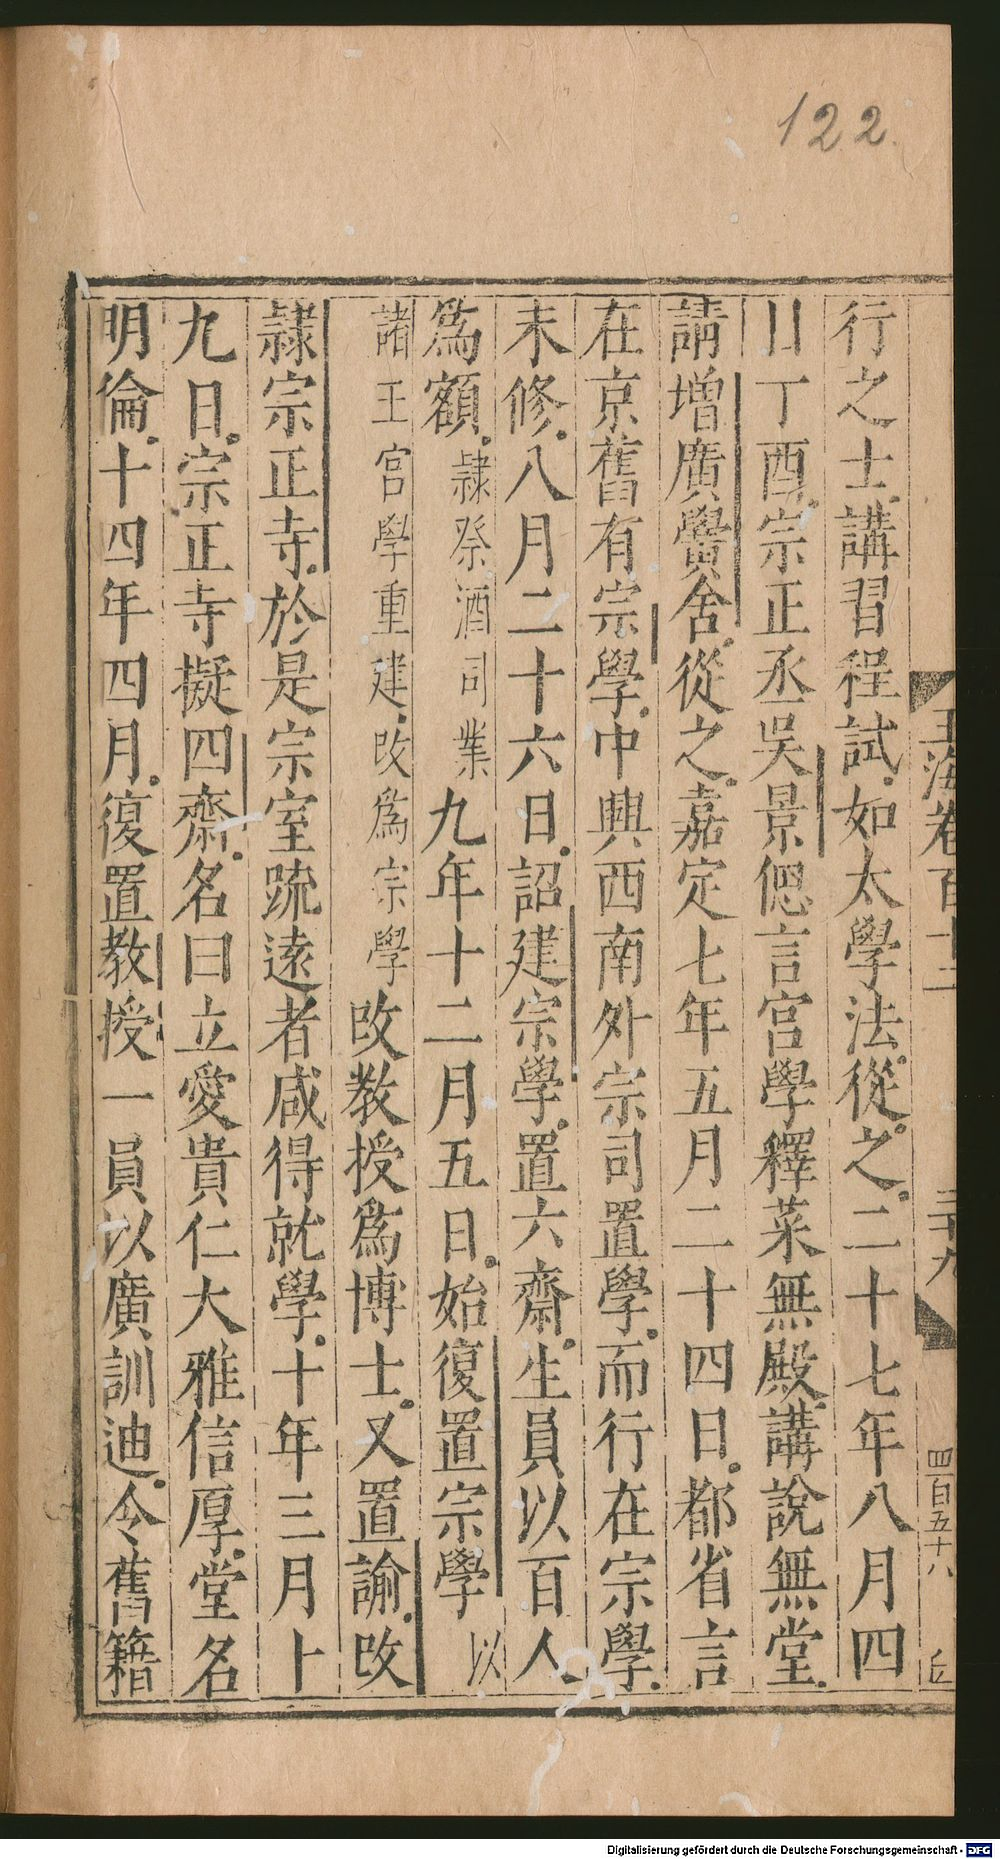 122
玉海卷百十二
三十九
四百五十八
丘
行之士講習程試如太學法從之二十七年八月四
日丁酉宗正丞吳景偲言宮學釋菜無殿講說無堂
請增廣黌舍從之嘉定七年五月二十四日都省言
在京舊有宗學中興西南外宗司置學而行在宗學
未修八月二十六日詔建宗學置六齋生員以百人
爲額隷祭酒司業九年十二月五日始復置宗學以
諸王宮學重建改爲宗學改教授爲博士又置諭改
隷宗正寺於是宗室踈遠者咸得就學十年三月十
九日宗正寺擬四齋名曰立愛貴仁大雅信厚堂名
明倫十四年四月復置教授一員以廣訓迪令舊籍
Digitalisierung gefördert durch die Deutsche Forschungsgemeinschaft - DFG